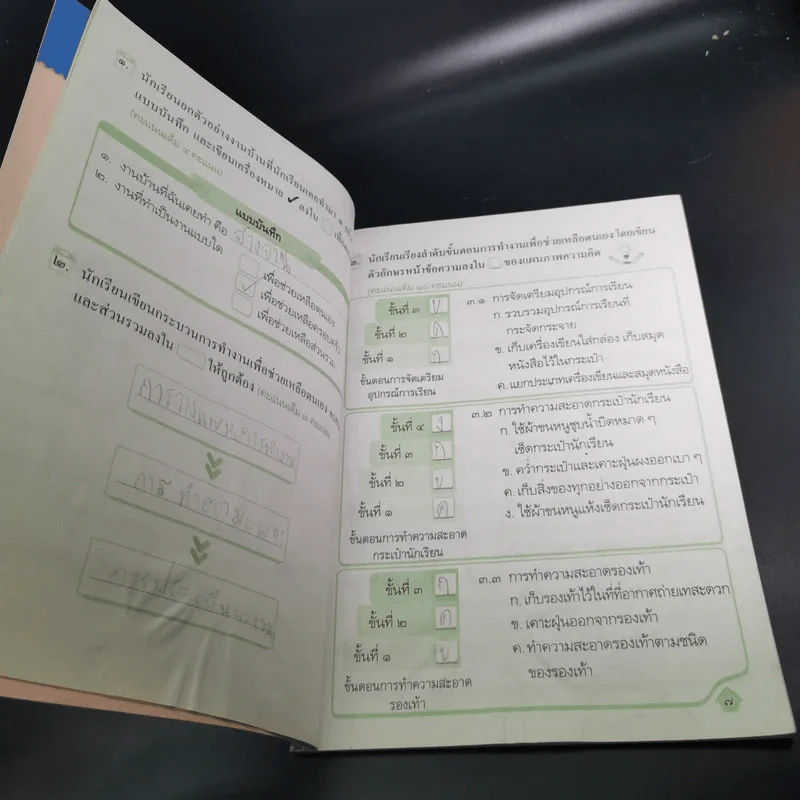 ๑.
นักเรียนยกตัวอย่างงานบ้านที่นักเรียนเคยทำมา ๑
แบบบันทึก และเขียนเครื่องหมาย ✓ ลงใน
(คะแนนเต็ม ๔ คะแนน)
แบบบันทึก
๑. งานบ้านที่ฉันเคยทำ คือ ล้างจาน
๒. งานที่ทำเป็นงานแบบใด
เพื่อช่วยเหลือตนเอง
✓ เพื่อช่วยเหลือครอบครัว
เพื่อช่วยเหลือส่วนรวม
๒.
นักเรียนเขียนกระบวนการทำงานเพื่อช่วยเหลือตนเอง
และส่วนรวมลงใน ให้ถูกต้อง (คะแนนเต็ม ๓ คะแนน)
การวางแผนการทำงาน
การทำตามแผน
การประเมิน
๓.
นักเรียนเรียงลำดับขั้นตอนการทำงานเพื่อช่วยเหลือตนเอง โดยเขียน
ตัวอักษรหน้าข้อความลงใน ของแผนภาพความคิด
(คะแนนเต็ม ๑๐ คะแนน)
ขั้นที่ ๓ ข
ขั้นที่ ๒ ค
ขั้นที่ ๑ ก
ขั้นตอนการจัดเตรียม
อุปกรณ์การเรียน
๓.๑ การจัดเตรียมอุปกรณ์การเรียน
ก. รวบรวมอุปกรณ์การเรียนที่
กระจัดกระจาย
ข. เก็บเครื่องเขียนใส่กล่อง เก็บสมุด
หนังสือไว้ในกระเป๋า
ค. แยกประเภทเครื่องเขียนและสมุดหนังสือ
ขั้นที่ ๔ ง
ขั้นที่ ๓ ก
ขั้นที่ ๒ ข
ขั้นที่ ๑ ค
ขั้นตอนการทำความสะอาด
กระเป๋านักเรียน
๓.๒ การทำความสะอาดกระเป๋านักเรียน
ก. ใช้ผ้าขนหนูชุบน้ำบิดหมาด ๆ
เช็ดกระเป๋านักเรียน
ข. คว่ำกระเป๋าและเคาะฝุ่นผงออกเบา ๆ
ค. เก็บสิ่งของทุกอย่างออกจากกระเป๋า
ง. ใช้ผ้าขนหนูแห้งเช็ดกระเป๋านักเรียน
ขั้นที่ ๓ ก
ขั้นที่ ๒ ค
ขั้นที่ ๑ ข
ขั้นตอนการทำความสะอาด
รองเท้า
๓.๓ การทำความสะอาดรองเท้า
ก. เก็บรองเท้าไว้ในที่ที่อากาศถ่ายเทสะดวก
ข. เคาะฝุ่นออกจากรองเท้า
ค. ทำความสะอาดรองเท้าตามชนิด
ของรองเท้า
๗